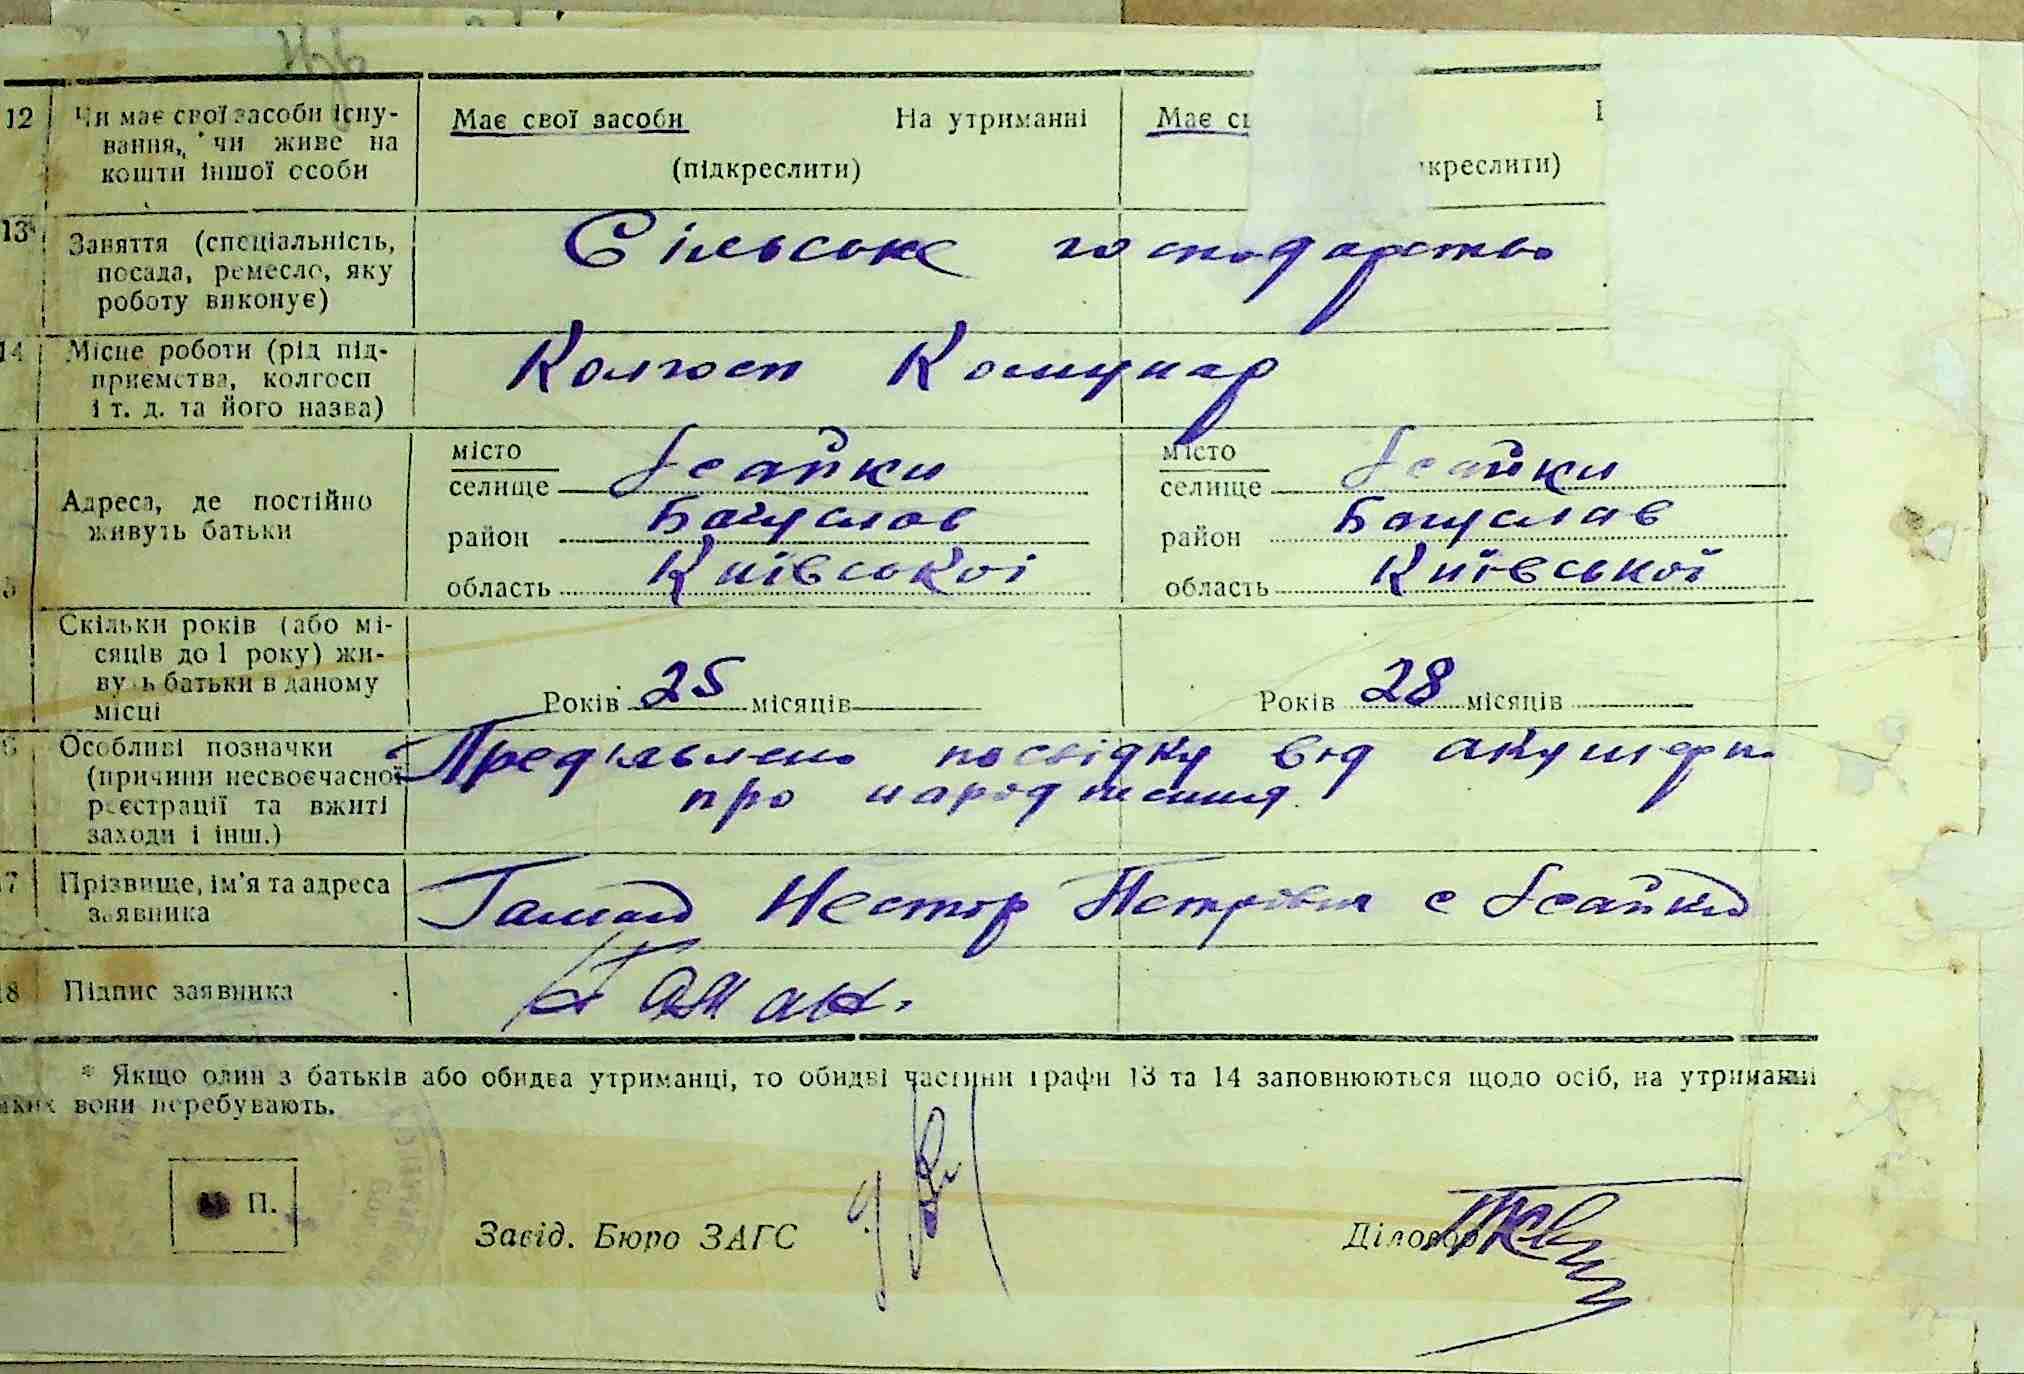 12 Чи має свої засоби існу- Має свої засоби На утриманні Має
вання, чи живе на
кошти іншої особи (підкреслити) креслити)
13 Заняття (спеціальність, Сільське господарство
посада, ремесло, яку
роботу виконує)
14 Місце роботи (рід під- Колгосп Комунар
приємства, колгосп
і т. д. та його назва)
місто місто
селище Ісайки селище Ісайки
Адреса, де постійно
живуть батьки район Богуслав район Богуслав
область Київської область Київської
Скільки років (або мі-
сяців до 1 року) жи-
вуть батьки в даному
місці Років 25 місяців Років 28 місяців
Особливі позначки Пред'явлено посвідку від акушерки
(причини несвоєчасної про народження
реєстрації та вжиті
заходи і інш.)
17 Прізвище, ім'я та адреса Гаман Нестор Петрович с Ісайки
заявника
18 Підпис заявника Гаман.
* Якщо один з батьків або обидва утриманці, то обидві частини графи 13 та 14 заповнюються щодо осіб, на утриманні
яких вони перебувають.
М П.
Завід. Бюро ЗАГС Діловод